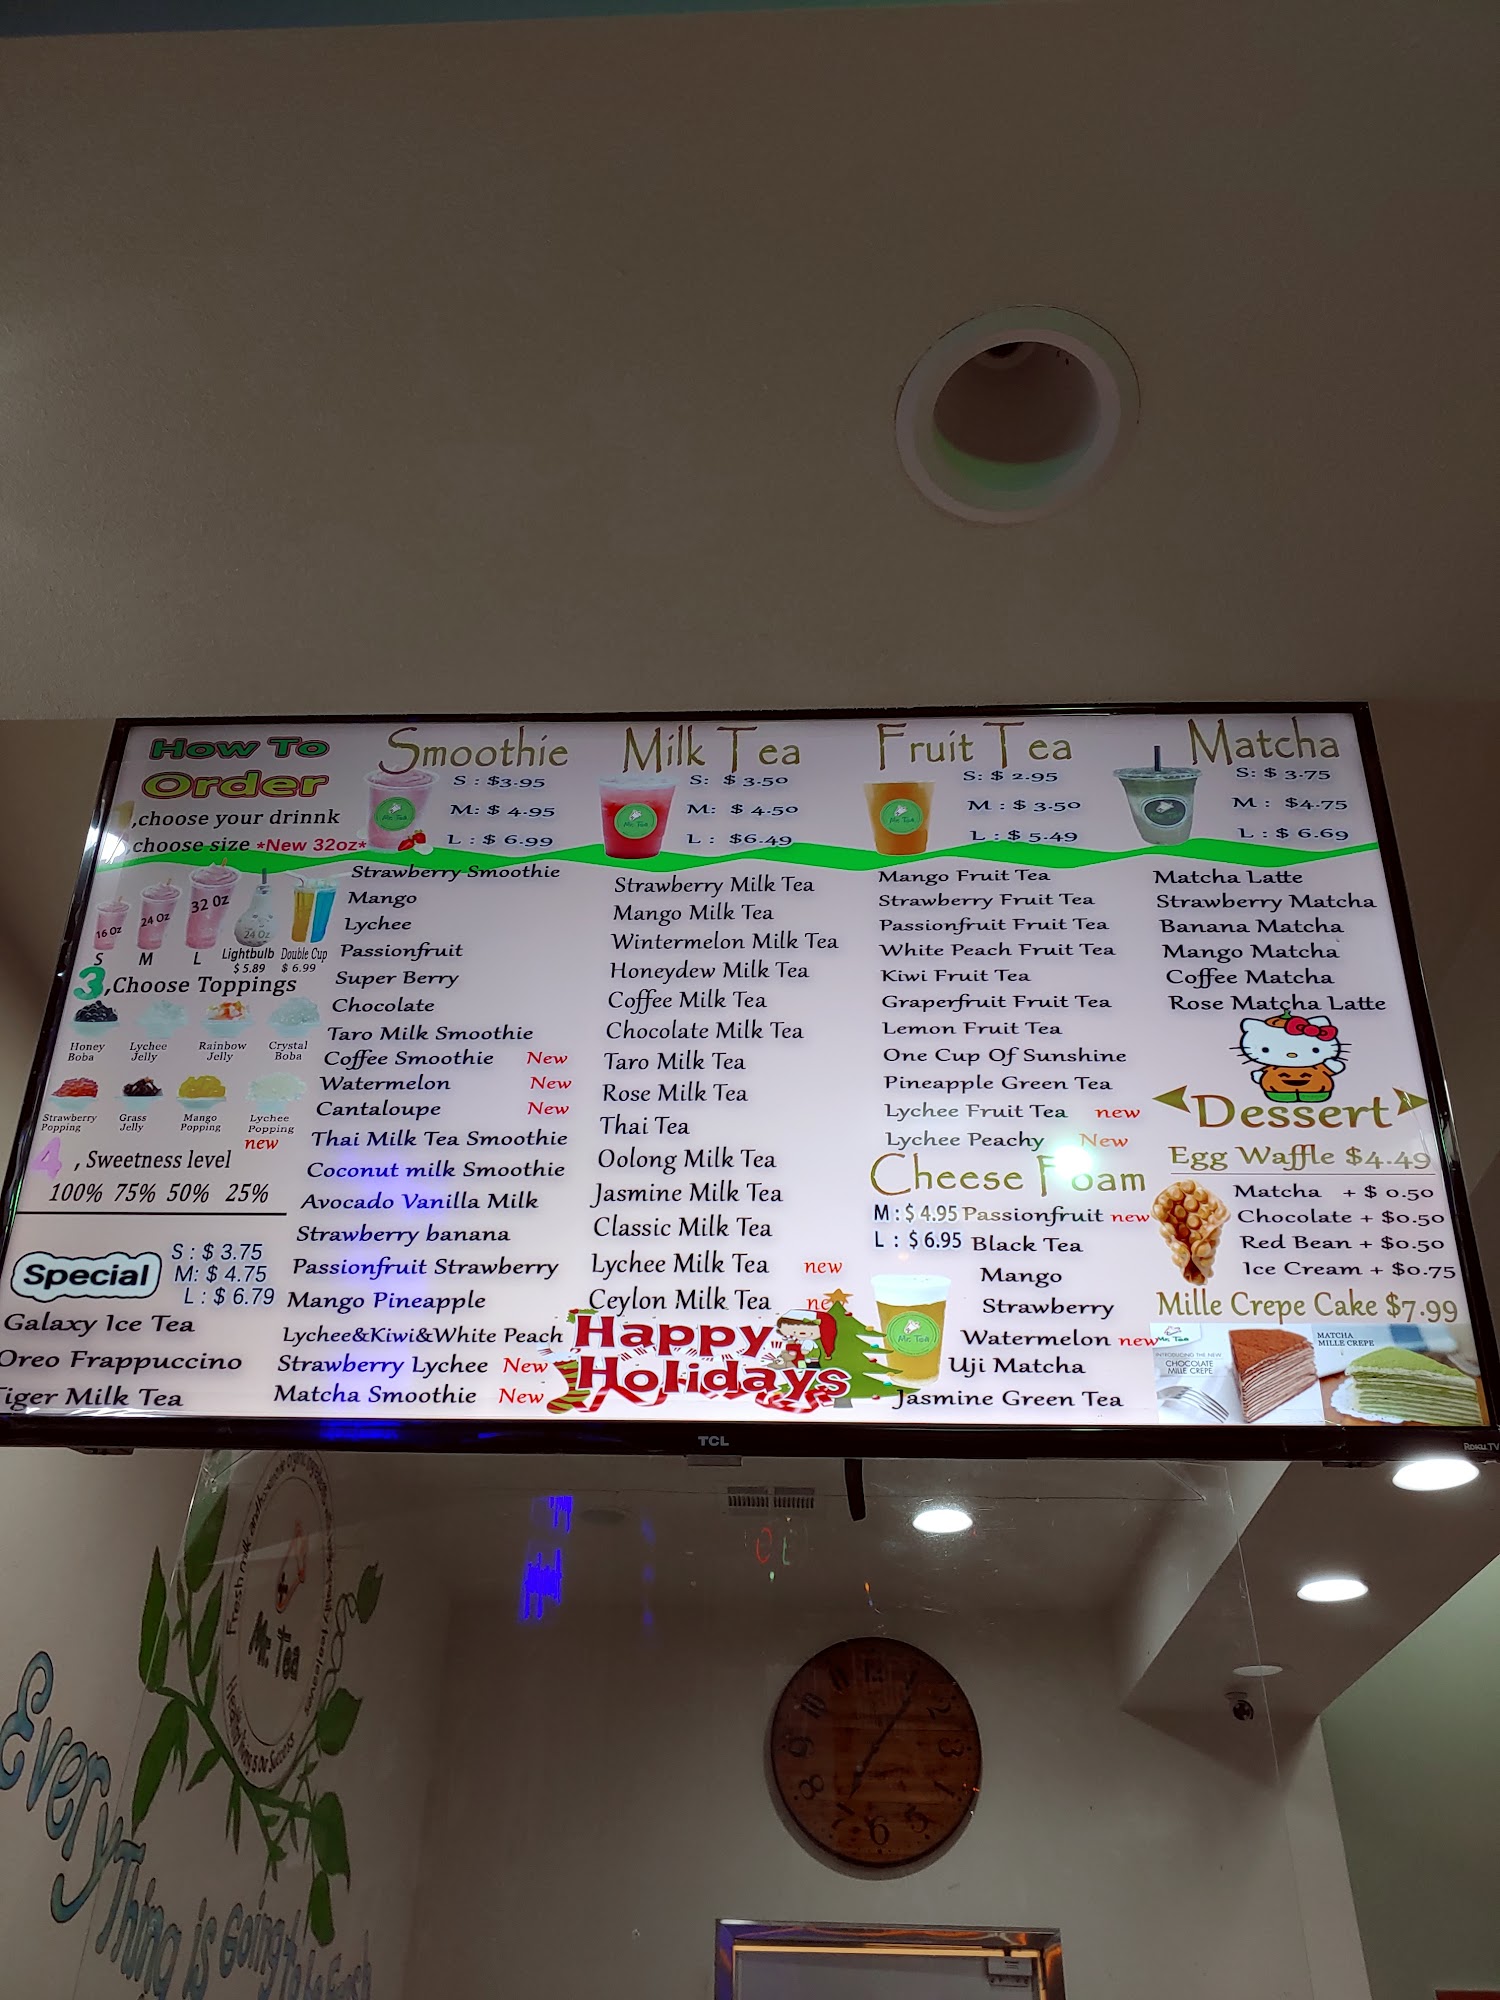 How To
Order
,choose your drinnk
,choose size *New 32oz*
16 Oz
24 Oz
32 Oz
24 Oz
S
M
L
Lightbulb
$ 5.89
Double Cup
$ 6.99
3,Choose Toppings
Honey Boba
Lychee Jelly
Rainbow Jelly
Crystal Boba
Strawberry Popping
Grass Jelly
Mango Popping
Lychee Popping
new
4 , Sweetness level
100% 75% 50% 25%
Special
S : $ 3.75
M: $ 4.75
L : $ 6.79
Galaxy Ice Tea
Oreo Frappuccino
Tiger Milk Tea
Smoothie
S : $3.95
M: $ 4.95
L : $ 6.99
Mr. Tea
Strawberry Smoothie
Mango
Lychee
Passionfruit
Super Berry
Chocolate
Taro Milk Smoothie
Coffee Smoothie New
Watermelon New
Cantaloupe New
Thai Milk Tea Smoothie
Coconut milk Smoothie
Avocado Vanilla Milk
Strawberry banana
Passionfruit Strawberry
Mango Pineapple
Lychee&Kiwi&White Peach
Strawberry Lychee New
Matcha Smoothie New
Milk Tea
S: $ 3.50
M: $ 4.50
L : $6.49
Mr. Tea
Strawberry Milk Tea
Mango Milk Tea
Wintermelon Milk Tea
Honeydew Milk Tea
Coffee Milk Tea
Chocolate Milk Tea
Taro Milk Tea
Rose Milk Tea
Thai Tea
Oolong Milk Tea
Jasmine Milk Tea
Classic Milk Tea
Lychee Milk Tea new
Ceylon Milk Tea new
Happy
Holidays
Fruit Tea
S: $ 2.95
M : $ 3.50
L : $ 5.49
Mango Fruit Tea
Strawberry Fruit Tea
Passionfruit Fruit Tea
White Peach Fruit Tea
Kiwi Fruit Tea
Graperfruit Fruit Tea
Lemon Fruit Tea
One Cup Of Sunshine
Pineapple Green Tea
Lychee Fruit Tea new
Lychee Peachy New
Cheese Foam
M : $ 4.95
L : $ 6.95
Passionfruit new
Black Tea
Mango
Strawberry
Watermelon new
Uji Matcha
Jasmine Green Tea
Mr. Tea
Matcha
S: $ 3.75
M : $4.75
L : $ 6.69
Matcha Latte
Strawberry Matcha
Banana Matcha
Mango Matcha
Coffee Matcha
Rose Matcha Latte
Dessert
Egg Waffle $4.49
Matcha + $ 0.50
Chocolate + $0.50
Red Bean + $0.50
Ice Cream + $0.75
Mille Crepe Cake $7.99
Mr. Tea
INTRODUCING THE NEW
CHOCOLATE
MILLE CREPE
MATCHA
MILLE CREPE
TCL
Roku TV
Mr. Tea
Everything is Going to be
10
2
9
3
8
7
6
5